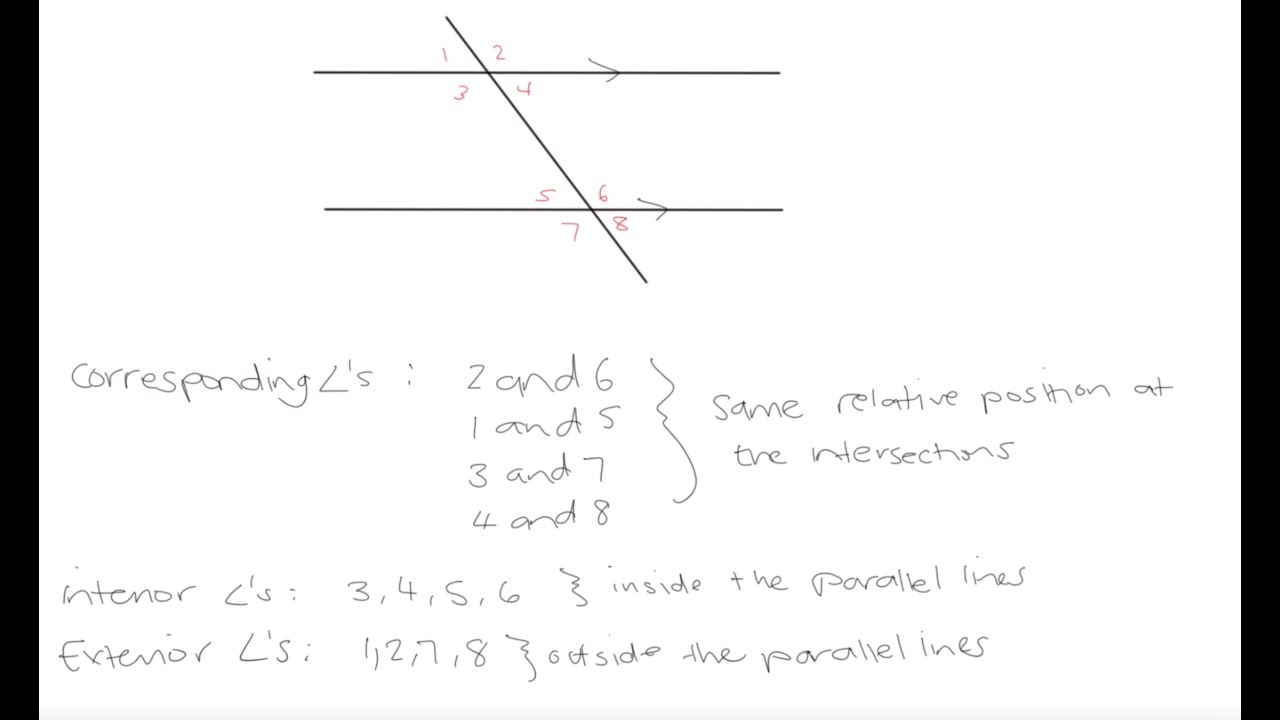 1 2
3 4
5 6
7 8
Corresponding ∠'s : 2 and 6
1 and 5
3 and 7
4 and 8
same relative position at
the intersections
interior ∠'s : 3, 4, 5, 6 } inside the parallel lines
Exterior ∠'s : 1, 2, 7, 8 } outside the parallel lines